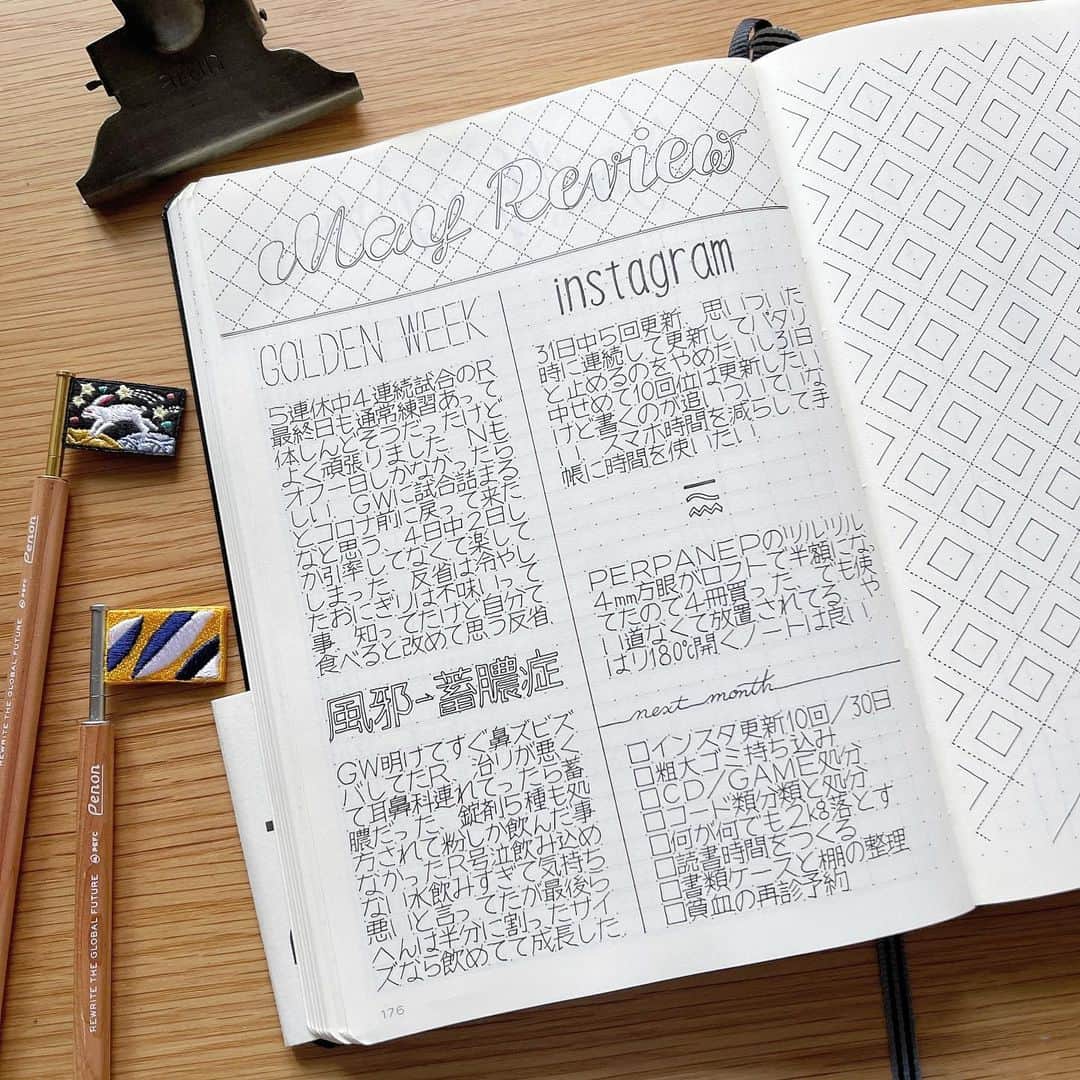 May Review
GOLDEN WEEK
5連休中4連続試合のR
最終日も通常練習あって
体しんどそうだったけど
よく頑張りました Nも
オフ一日しかなかったら
しい GWに試合詰まる
とコロナ前に戻って来た
なと思う 4日中2日し
か引率してなくて楽して
しまった 反省は冷やし
たおにぎりは不味いって
事 知ってたけど自分で
食べると改めて思う反省.
風邪→蓄膿症
GW明けてすぐ鼻ズビズ
バしてたR 治りが悪く
て耳鼻科連れてったら蓄
膿だった 錠剤5種も処
方されて粉しか飲んだ事
なかったR号泣飲み込め
ない水飲みすぎて気持ち
悪いと言ってたが最後ら
へんは半分に割ったサイ
ズなら飲めてて成長した.
176
instagram
31日中5回更新 思いついた
時に連続して更新してパタリ
と止めるのをやめたいし31日
中せめて10回位は更新したい
けど書くのが追いついていな
い スマホ時間を減らして手
帳に時間を使いたい
PERPANEPのツルツル
4mm方眼がロフトで半額にな
ってたので4冊買った でも使
い道なくて放置されてる や
はり180℃開くノートは良い
next month
□インスタ更新10回/30日
□粗大ゴミ持ち込み
□CD/GAME処分
□コード類分類と処分
□何が何でも2kg落とす
□読書時間をつくる
□書類ケースと棚の整理
□貧血の再診予約
REWRITE THE GLOBAL FUTURE PEFC Penon
REWRITE THE GLOBAL FUTURE PEFC Penon